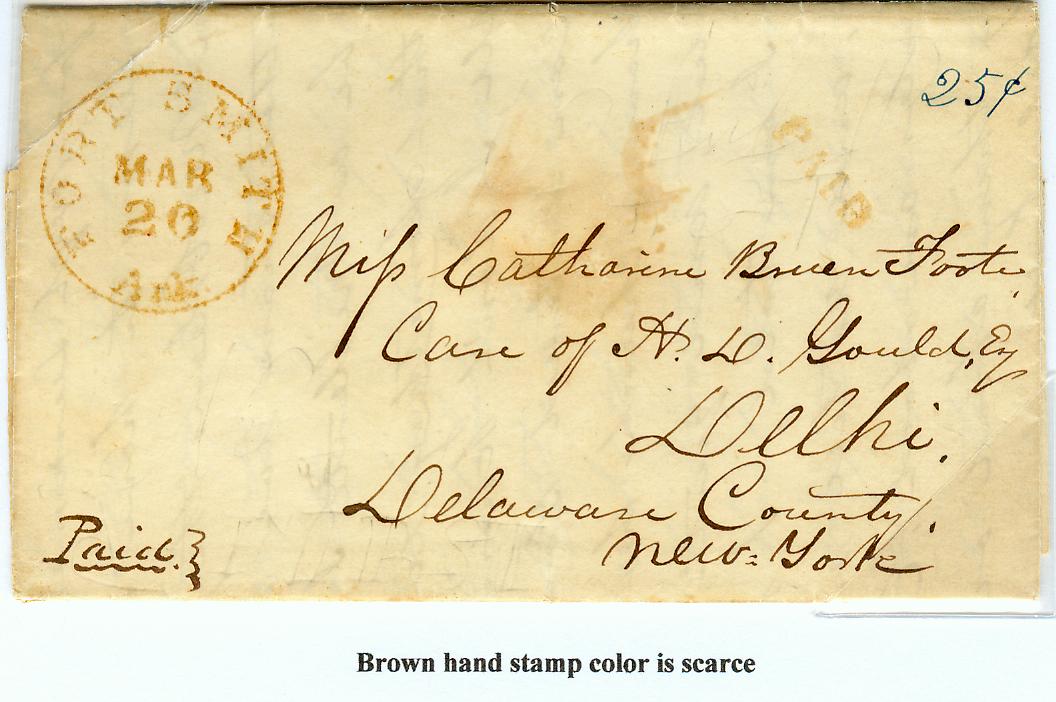 FORT SMITH
MAR
20
Ark
25¢
PAID
Miss Catharine Bruen Foote,
Care of H. D. Gould, Esq
Delhi.
Delaware County.
New=York
Paid.
Brown hand stamp color is scarce